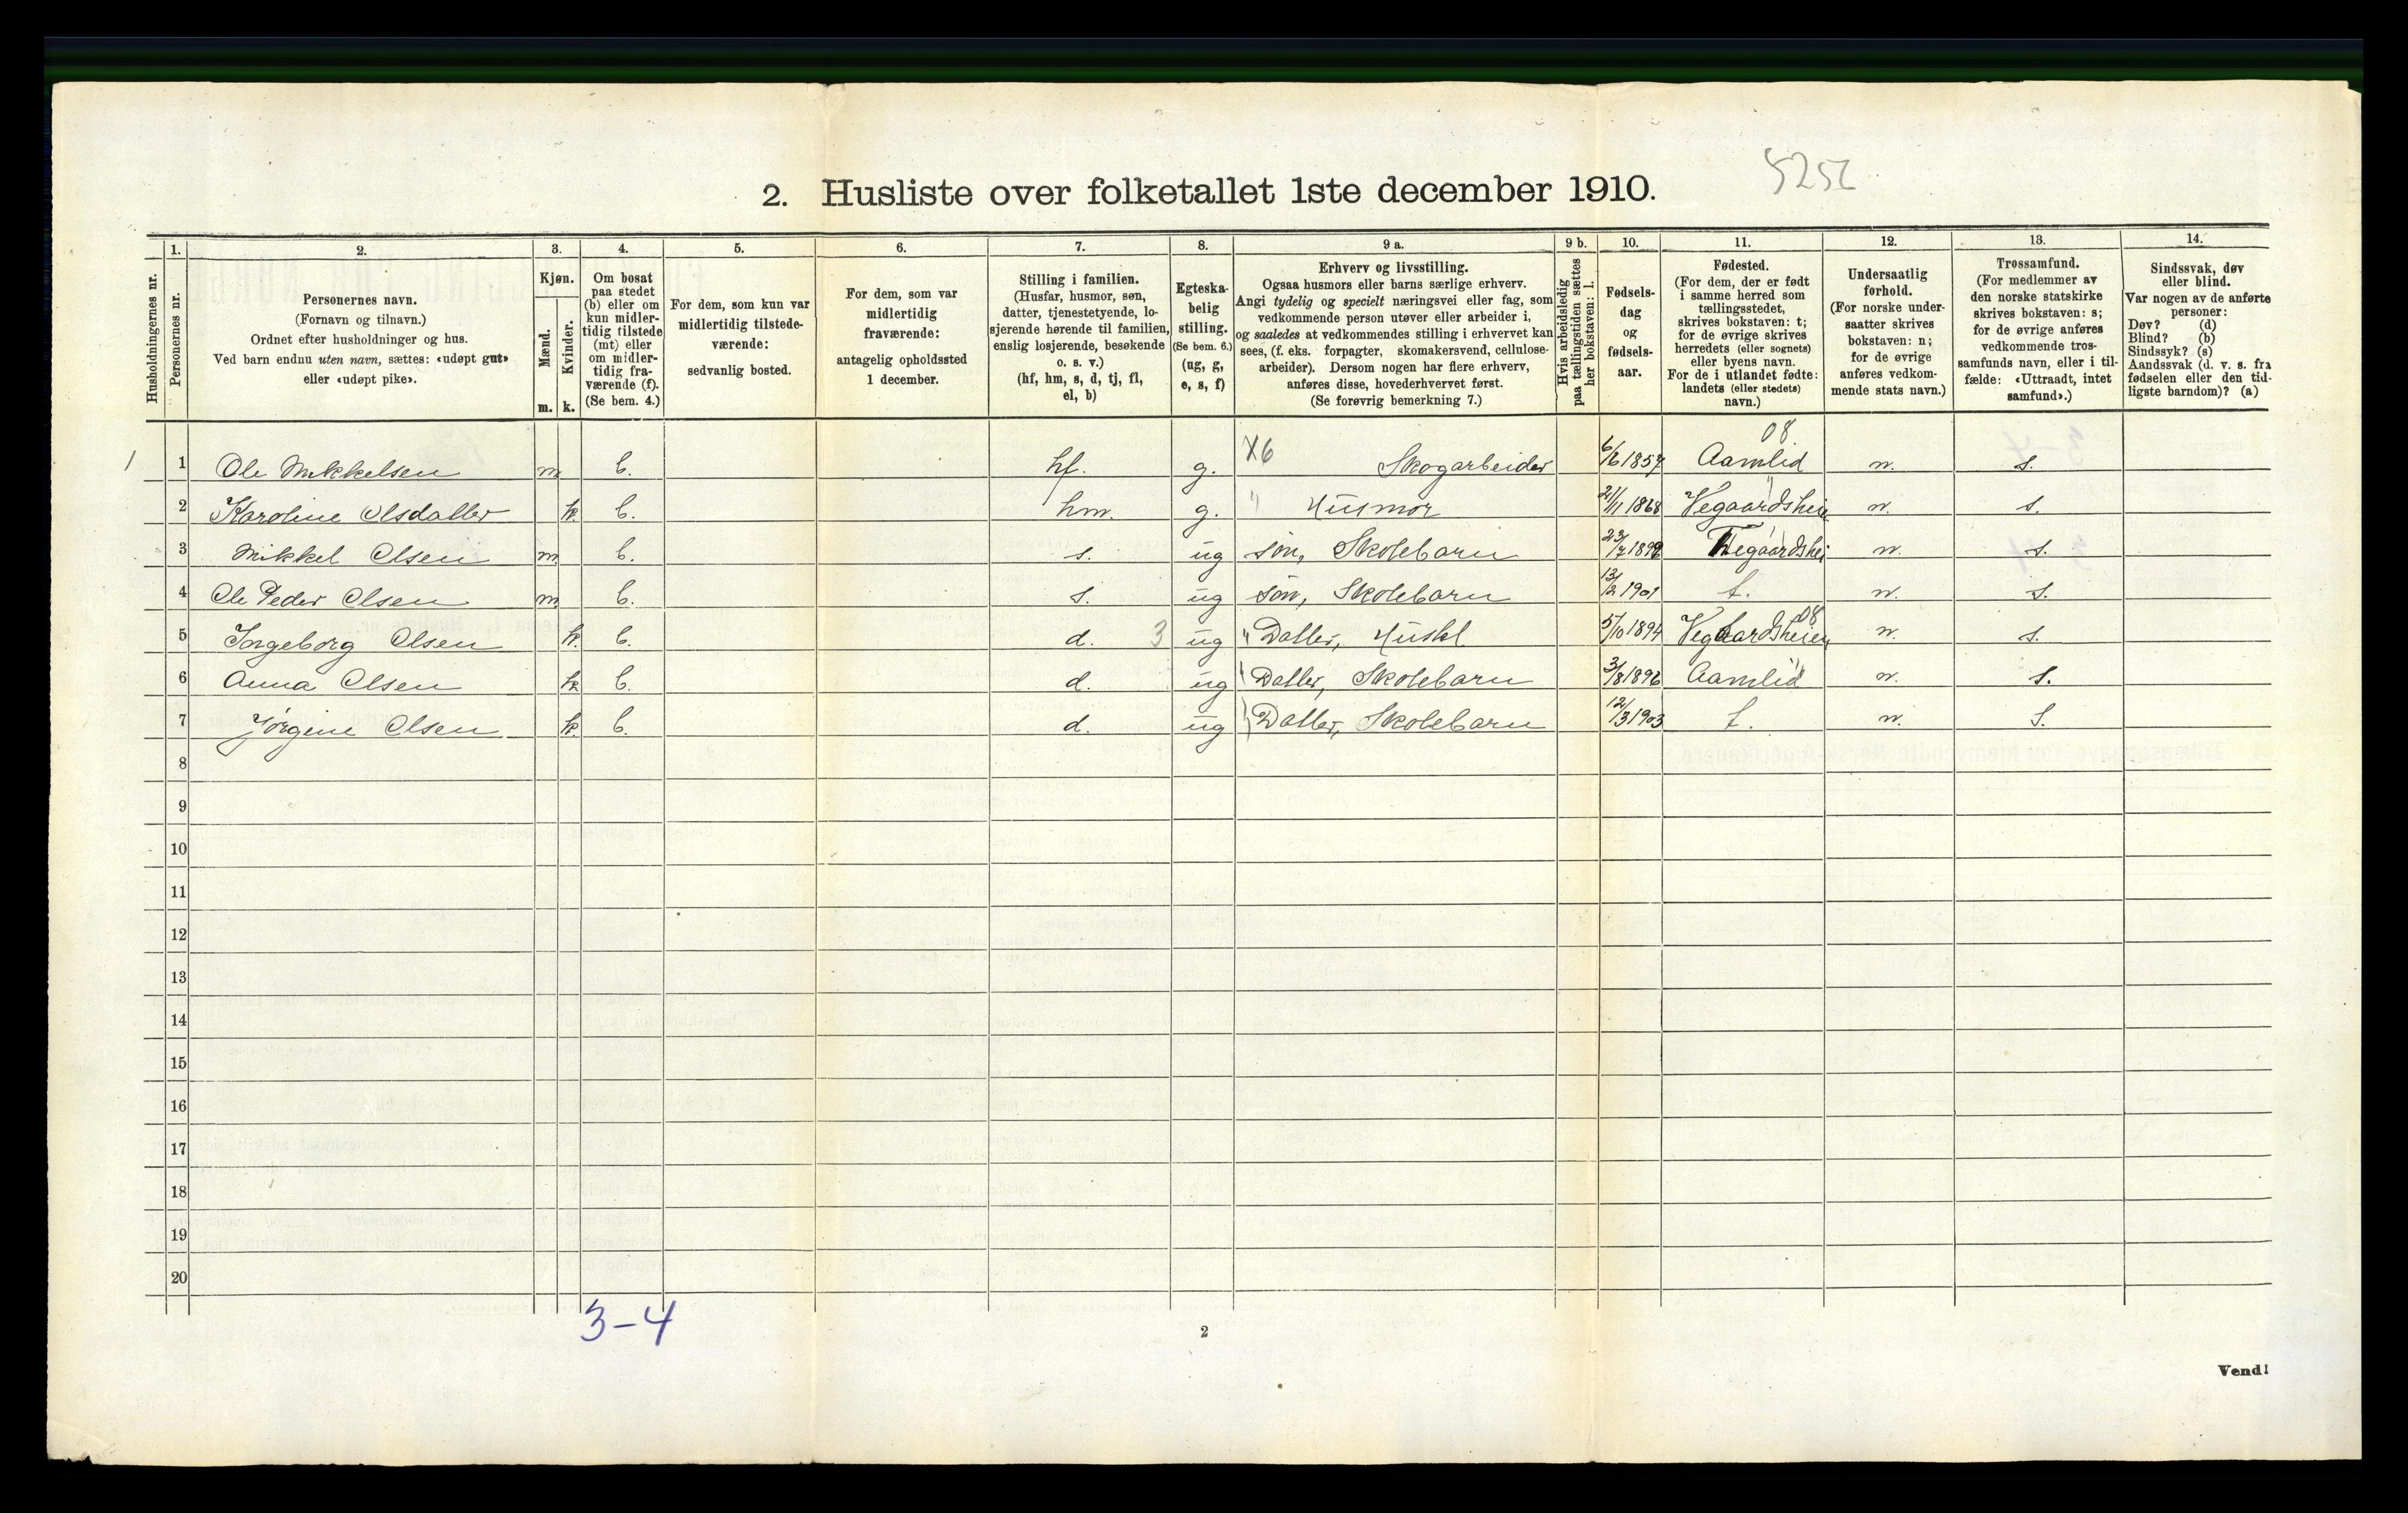 5252
2. Husliste over folketallet 1ste december 1910.
Husholdningernes nr.
1.
Personernes nr.
2.
Personernes navn.
(Fornavn og tilnavn.)
Ordnet efter husholdninger og hus.
Ved barn endnu uten navn, sættes: «udøpt gut»
eller «udøpt pike».
3.
Kjøn.
Mænd.
Kvinder.
m. k.
4.
Om bosat
paa stedet
(b) eller om
kun midler-
tidig tilstede
(mt) eller
om midler-
tidig fra-
værende (f).
(Se bem. 4.)
5.
For dem, som kun var
midlertidig tilstede-
værende:
sedvanlig bosted.
6.
For dem, som var
midlertidig
fraværende:
antagelig opholdssted
1 december.
7.
Stilling i familien.
(Husfar, husmor, søn,
datter, tjenestetyende, lo-
sjerende hørende til familien,
enslig losjerende, besøkende
o. s. v.)
(hf, hm, s, d, tj, fl,
el, b)
8.
Egteska-
belig
stilling.
(Se bem. 6.)
(ug, g,
e, s, f)
9 a.
Erhverv og livsstilling.
Ogsaa husmors eller barns særlige erhverv.
Angi tydelig og specielt næringsvei eller fag, som
vedkommende person utøver eller arbeider i,
og saaledes at vedkommendes stilling i erhvervet kan
sees, (f. eks. forpagter, skomakersvend, cellulose-
arbeider). Dersom nogen har flere erhverv,
anføres disse, hovederhvervet først.
(Se forøvrig bemerkning 7.)
9 b.
Hvis arbeidsledig
paa tællingstiden sættes
her bokstaven: l.
10.
Fødsels-
dag
og
fødsels-
aar.
11.
Fødested.
(For dem, der er født
i samme herred som
tællingsstedet,
skrives bokstaven: t;
for de øvrige skrives
herredets (eller sognets)
eller byens navn.
For de i utlandet fødte:
landets (eller stedets)
navn.)
12.
Undersaatlig
forhold.
(For norske under-
saatter skrives
bokstaven: n;
for de øvrige
anføres vedkom-
mende stats navn.)
13.
Trossamfund.
(For medlemmer av
den norske statskirke
skrives bokstaven: s;
for de øvrige anføres
vedkommende tros-
samfunds navn, eller i til-
fælde: «Uttraadt, intet
samfund».)
14.
Sindssvak, døv
eller blind.
Var nogen av de anførte
personer:
Døv? (d)
Blind? (b)
Sindssyk? (s)
Aandssvak (d. v. s. fra
fødselen eller den tid-
ligste barndom)? (a)
08
1 1 Ole Mikkelsen m b. hf. g. X6 Skogarbeider 6/6 1857 Aamlid n. s.
2 Karoline Olsdatter k. b. hm. g. " Husmor 21/11 1868 Vegaardsheien n. s.
3 Mikkel Olsen m b. s. ug søn, Skolebarn 23/7 1899 Vegaardshei n. s.
4 Ole Peder Olsen m b. s. ug søn, Skolebarn 13/2 1901 t. n. s.
08
5 Ingeborg Olsen k. b. d. 3 ug " Datter, Huskl 5/10 1894 Vegaardsheien n. s.
6 Anna Olsen k b. d. ug Datter, Skolebarn 3/8 1896 Aamlid n. s.
7 Jørgine Olsen k b. d. ug Datter, Skolebarn 12/3 1903 t. n. s.
8
9
10
11
12
13
14
15
16
17
18
19
20
3-4
2
Vend!